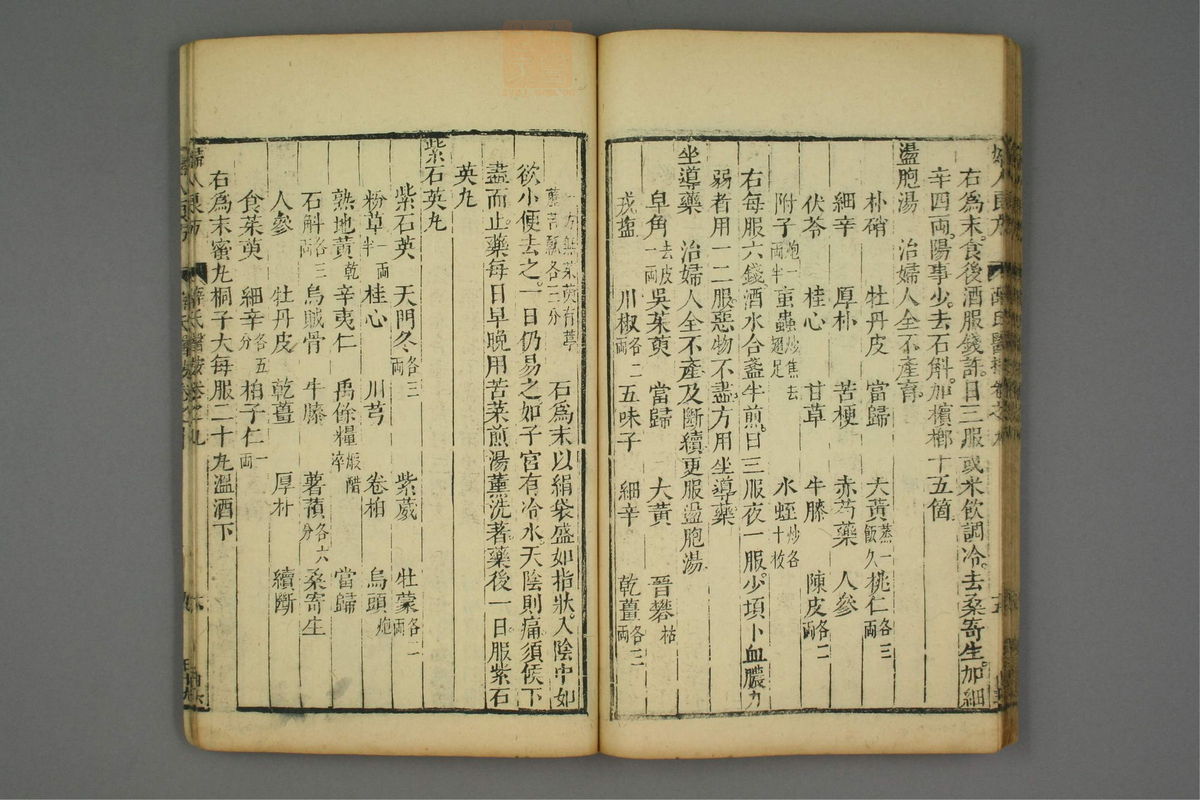 右爲末。食後酒服錢許。日三服。或米飲調冷。去桑寄生。加細
辛四兩。陽事少。去石斛。加檳榔十五箇
盪胞湯 治婦人全不產育。
朴硝 牡丹皮 當歸 大黃蒸一飯久 桃仁各三兩
細辛 厚朴 苦梗 赤芍藥 人參
伏苓 桂心 甘草 牛膝 陳皮各二兩
附子炮一兩半 䖟蟲炒焦去翅足 水蛭炒各十枚
右每服六錢。酒水合盞半煎。日三服夜一服。少頃卜血膿力
弱者用一二服。惡物不盡。方用坐導藥。
坐導藥 治婦人全不產及斷續。更服盪胞湯。
皁角去皮一兩 吳茱萸 當歸 大黃 晉礬枯
戎鹽 川椒各二兩 五味子 細辛 乾薑各三兩
一方無茱萸有葶藶苦瓠各三分 右爲末以絹袋盛如指狀。入陰中如
欲小便去之。一日仍易之如子宮有冷水。天陰則痛須候下
盡而止。藥每日早晚用苦菜煎湯薰洗著藥後一日服紫石
英丸
紫石英丸
紫石英 天門冬各三兩 紫葳 牡蒙各一兩
粉草一兩半 桂心 川芎 卷柏 烏頭炮
熟地黃乾 辛夷仁 禹餘糧煅醋淬 當歸
石斛各三兩 烏賊骨 牛膝 薯蕷各六分 桑寄生
人參 牡丹皮 乾薑 厚朴 續斷
食茱萸 細辛各五分 柏子仁一兩
右爲末蜜丸桐子大每服二十丸溫酒下